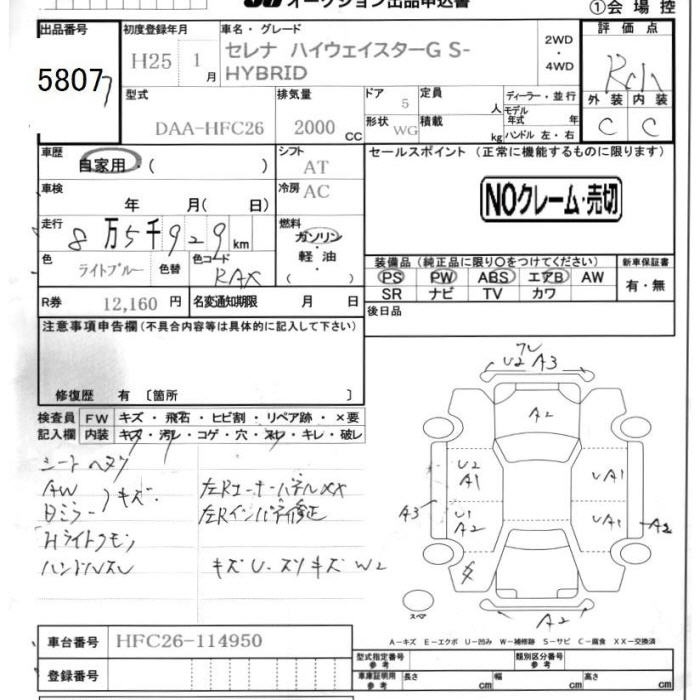 オークション出品申込書
①会場控
出品番号
5807
初度登録年月
H25 1月
車名・グレード
セレナ ハイウェイスターG S-
HYBRID
2WD
・
4WD
評価点
外装 内装
C C
型式
DAA-HFC26
排気量
2000 CC
ドア
5
形状 WG
定員
人
積載
kg
ディーラー・並行
モデル年式 年
ハンドル 左・右
車歴
自家用・( )
シフト
AT
セールスポイント (正常に機能するものに限ります)
NOクレーム・売切
車検
年 月( 日)
冷房 AC
走行
8万5千929km
燃料
ガソリン
・
軽油
( )
色
ライトブルー
色替
色コード
RAX
装備品 (純正品に限り〇をつけてください)
PS PW ABS エアB AW
SR ナビ TV カワ
新車保証書
有・無
R券 12,160 円
名変通知期限 月 日
後日品
注意事項申告欄 (不具合内容等は具体的に記入して下さい)
修復歴 有 〔箇所 〕
検査員記入欄
FW キズ・飛石・ヒビ割・リペア跡・×要
内装 キズ・汚レ・コゲ・穴・スレ・キレ・破レ
AW
キズ
左Rコーナーパネル××
ハンドルスレ
キズU・スリキズ W2
U2 A3
A2
U2
A1
UA1
A3
U1
A2
UA1
A2
A2
スペア
A-キズ E-エクボ U-凹み W-補修跡 S-サビ C-腐食 XX-交換済
車台番号 HFC26-114950
登録番号
型式指定番号
参考
類別区分番号
参考
車庫証明用
参考
長さ cm
幅 cm
高さ cm